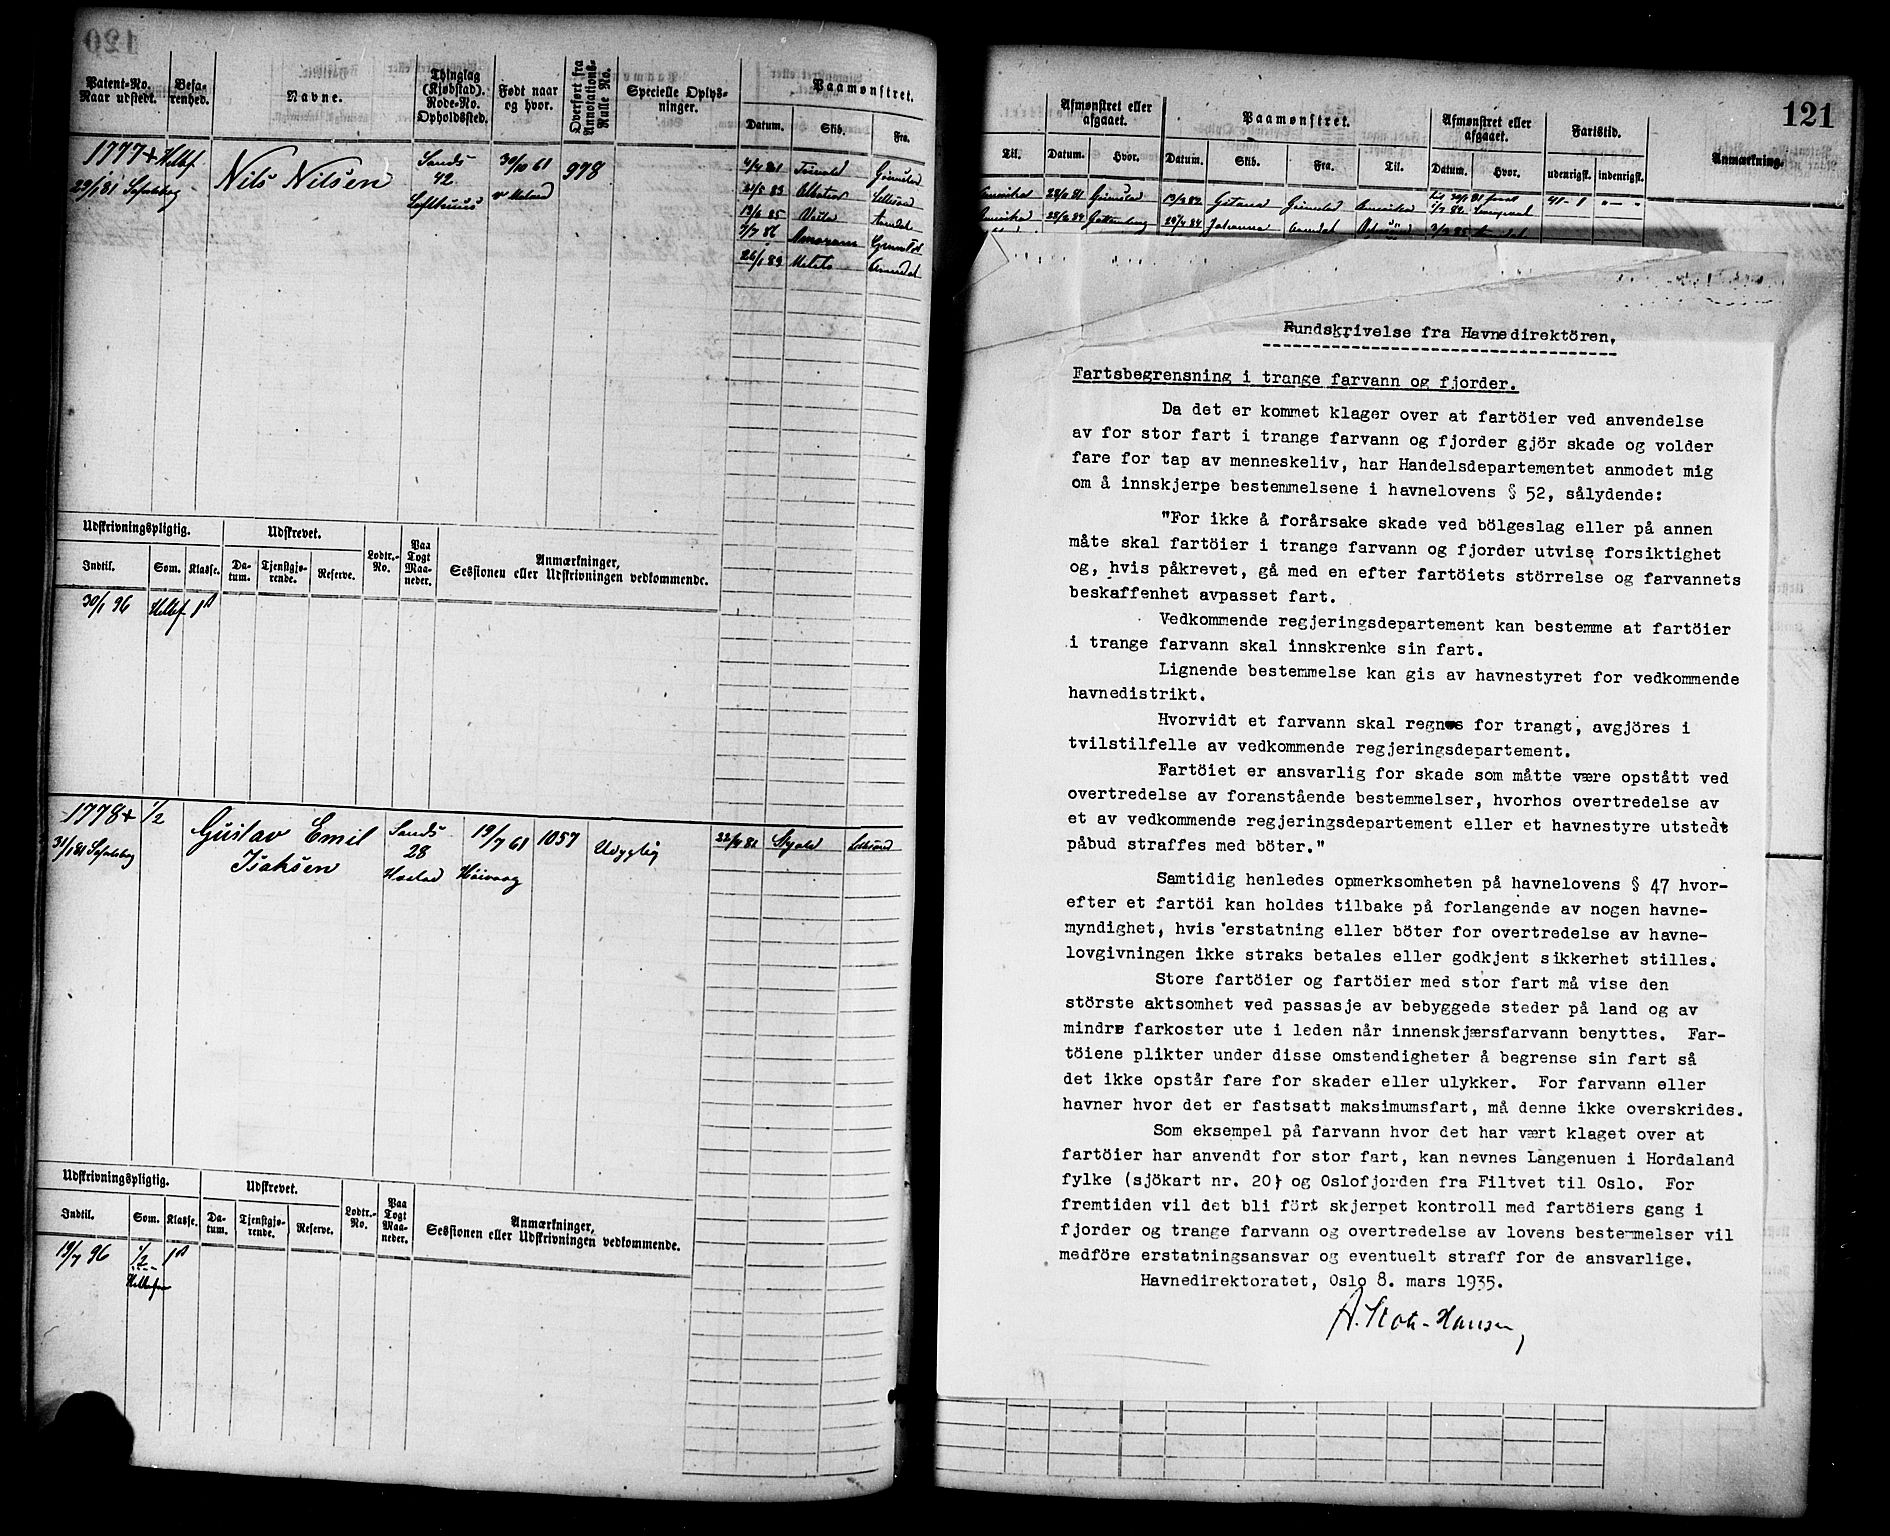 121
Patent-No. Naar udstedt.
Befarenhed.
Navne.
Thinglag (Kjøbstad). Rode-No. Opholdssted.
Født naar og hvor.
Overført fra Annotations-Rulle No.
Specielle Oplysninger.
Paamønstret.
Datum. Skib. Fra.
1777+
29/1 81
Nils Nilsen
Sands
42
Lofthuus
30/10 61
998
4/4 81
21/5 83
19/6 85
3/7 86
26/1 89
Udskrivningspligtig. Udskrevet. Lodtr.-No. Paa Togt Maaneder. Anmærkninger, Sessionen eller Udskrivningen vedkommende.
Indtil. Som. Klasse. Datum. Tjenstgjørende. Reserve.
30/1 96
1778+ 1/2
31/1 81
Gustav Emil
Isaksen
Sands
28
19/7 61
Høivaag
1057
Udygtig
Udskrivningspligtig. Udskrevet. Lodtr.-No. Paa Togt Maaneder. Anmærkninger, Sessionen eller Udskrivningen vedkommende.
Indtil. Som. Klasse. Datum. Tjenstgjørende. Reserve.
19/7 96 1/2
Afmønstret eller afgaaet. Paamønstret. Afmønstret eller afgaaet. Fartstid. Anmærkning.
Til. Datum. Hvor. Datum. Skib. Fra. Til. Datum. Hvor. udenrigsk. indenrigsk.
Rundskrivelse fra Havnedirektören,
Fartsbegrensning i trange farvann og fjorder.
Da det er kommet klager over at fartöier ved anvendelse
av for stor fart i trange farvann og fjorder gjör skade og volder
fare for tap av menneskeliv, har Handelsdepartementet anmodet mig
om å innskjerpe bestemmelsene i havnelovens § 52, sålydende:
"For ikke å forårsake skade ved bölgeslag eller på annen
måte skal fartöier i trange farvann og fjorder utvise forsiktighet
og, hvis påkrevet, gå med en efter fartöiets störrelse og farvannets
beskaffenhet avpasset fart.
Vedkommende regjeringsdepartement kan bestemme at fartöier
i trange farvann skal innskrenke sin fart.
Lignende bestemmelse kan gis av havnestyret for vedkommende
havnedistrikt.
Hvorvidt et farvann skal regnes for trangt, avgjöres i
tvilstilfelle av vedkommende regjeringsdepartement.
Fartöiet er ansvarlig for skade som måtte være opstått ved
overtredelse av foranstående bestemmelser, hvorhos overtredelse av
et av vedkommende regjeringsdepartement eller et havnestyre utstedt
påbud straffes med böter."
Samtidig henledes opmerksomheten på havnelovens § 47 hvor-
efter et fartöi kan holdes tilbake på forlangende av nogen havne-
myndighet, hvis erstatning eller böter for overtredelse av havne-
lovgivningen ikke straks betales eller godkjent sikkerhet stilles.
Store fartöier og fartöier med stor fart må vise den
störste aktsomhet ved passasje av bebyggede steder på land og av
mindre farkoster ute i leden når innenskjærsfarvann benyttes. Far-
töiene plikter under disse omstendigheter å begrense sin fart så
det ikke opstår fare for skader eller ulykker. For farvann eller
havner hvor det er fastsatt maksimumsfart, må denne ikke overskrides.
Som eksempel på farvann hvor det har vært klaget over at
fartöier har anvendt for stor fart, kan nevnes Langenuen i Hordaland
fylke (sjökart nr. 20) og Oslofjorden fra Filtvet til Oslo. For
fremtiden vil det bli fört skjerpet kontroll med fartöiers gang i
fjorder og trange farvann og overtredelse av lovens bestemmelser vil
medföre erstatningsansvar og eventuelt straff for de ansvarlige.
Havnedirektoratet, Oslo 8. mars 1935.